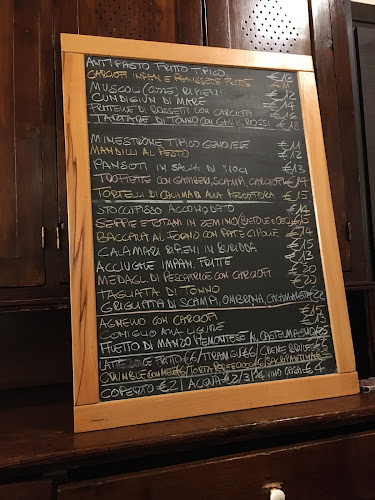 ANTIPASTO FRITTO TIPICO €13
CARCIOFI IMPAN. E PANISSETTE FRITTE €11
MUSCOLI (COZZE) RIPIENI €12
CUNDIGIUN DI MARE €14
FRITTELLE DI ROSSETTI CON CARCIOFI €16
TARTARE DI TONNO CON GAMB. ROSSI €18
MINESTRONE TIPICO GENOVESE €11
MANDILLI AL PESTO €12
PANSOTI IN SALSA DI NOCI €13
TROFIETTE CON GAMBERI, SCAMPI, CARCIOFI €14
TORTELLI DI CALAMARI ALLA PESCATORA €15
STOCCAFISSO ACCOMODATO €14
SEPPIE E TOTANI IN ZEMINO €15
BACCALÀ AL FORNO CON PATATE CIPOLLE €14
CALAMARI RIPIENI IN BURIDDA €15
ACCIUGHE IMPAN. FRITTE €13
MEDAGL. DI PESCATRICE CON CARCIOFI €20
TAGLIATA DI TONNO €20
GRIGLIATA DI SCAMPI, OMBRINA, CALAMARI €22
AGNELLO CON CARCIOFI €15
CONIGLIO ALLA LIGURE
FILETTO DI MANZO PIEMONTESE AL CASTELMAGNO
LATTE DOLCE FRITTO €6/TIRAMISÙ €6/CREME BRULÉE €5
CRUMBLE CON MELE €6/TORTA
COPERTO €2/ACQUA €2/3/ VINO CASA €4